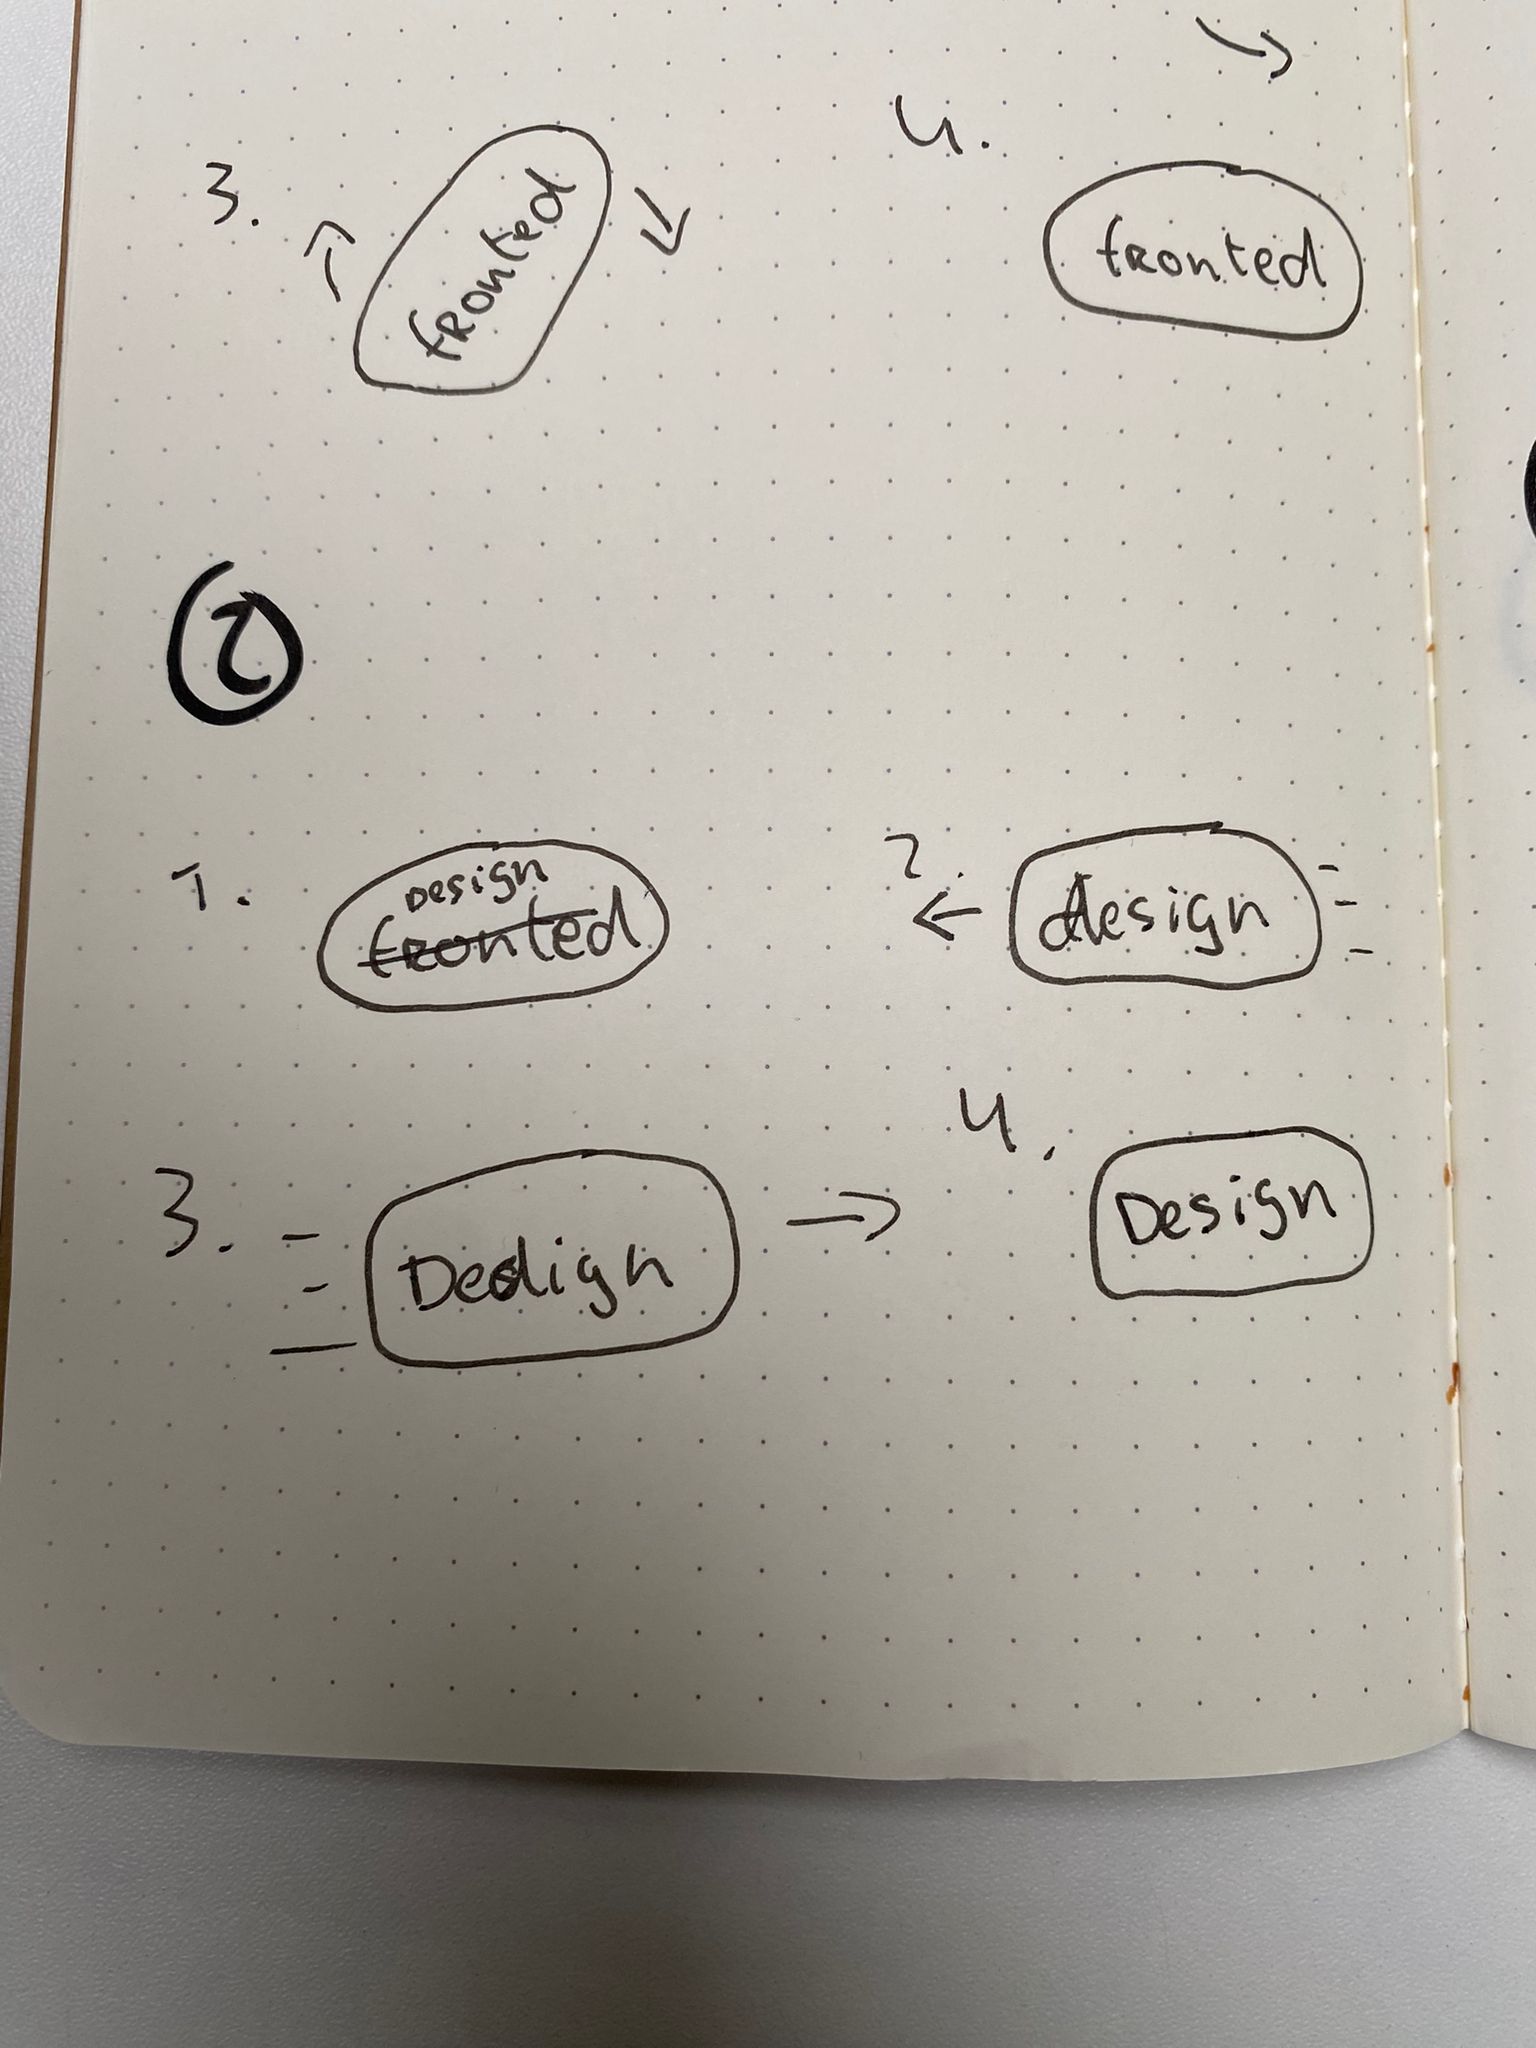 3.
fronted
4.
fronted
2
1.
Design
fronted
2.
design
3.
Dedign
4.
Design